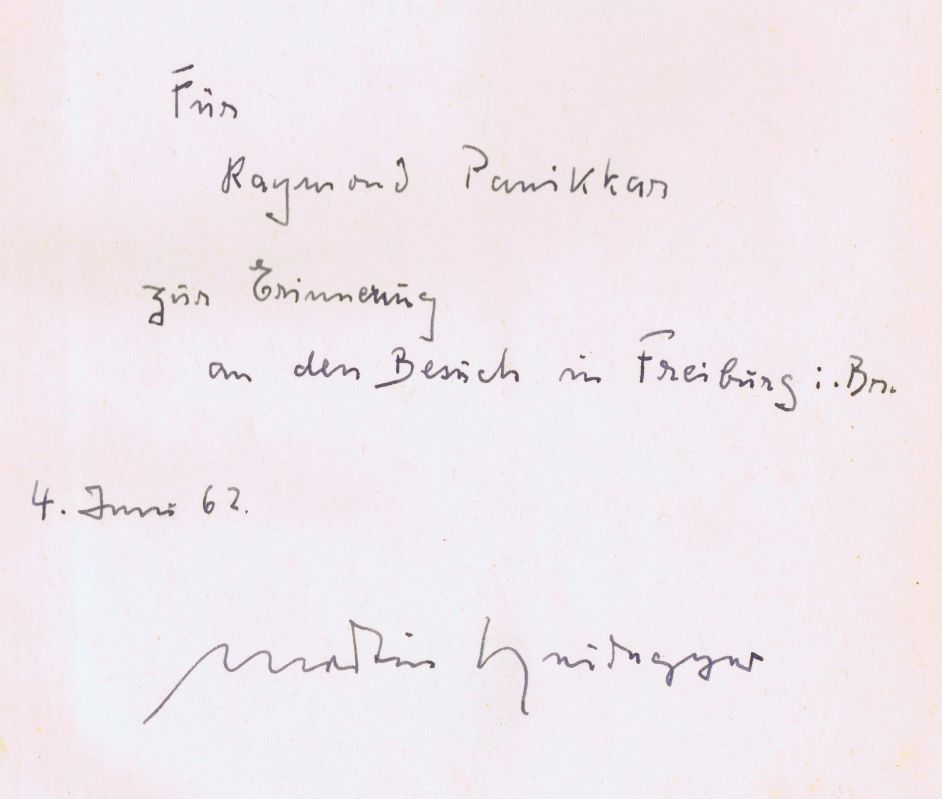 Für
Raymond Panikkar
zur Erinnerung
an den Besuch in Freiburg i. Br.
4. Juni 62.
Martin Heidegger